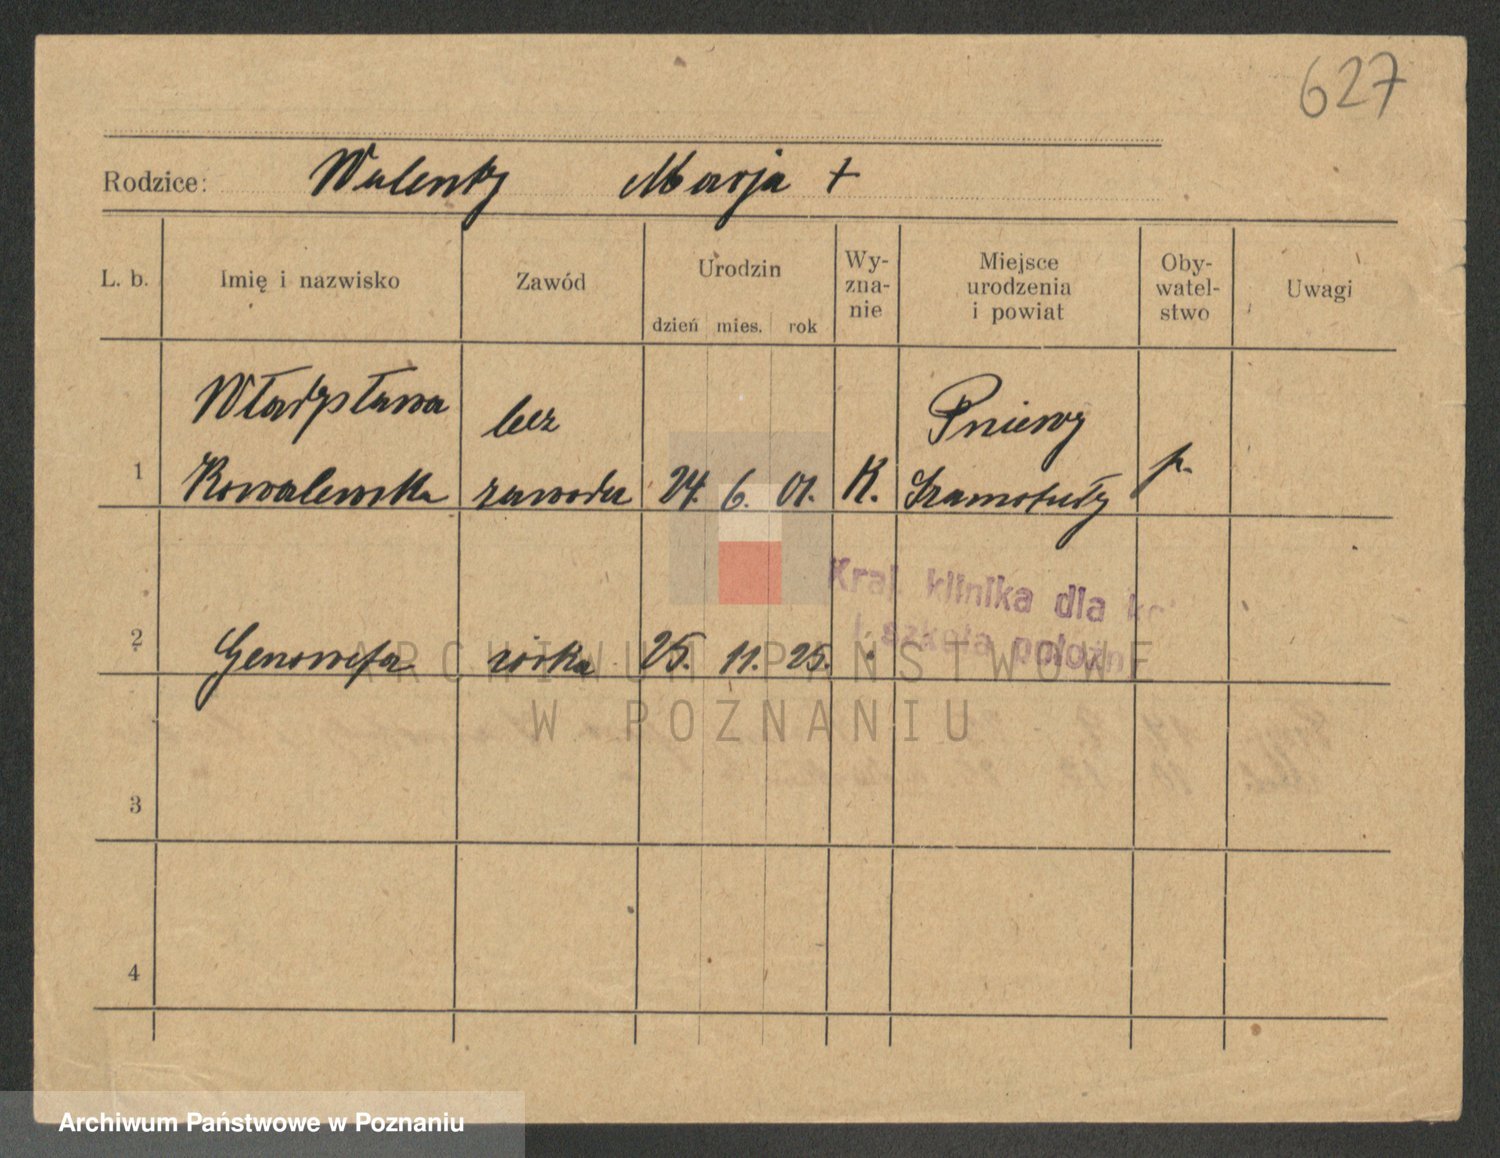 627
Rodzice: Walenty Marja +
L. b. Imię i nazwisko Zawód Urodzin dzień mies. rok Wy- zna- nie Miejsce urodzenia i powiat Oby- watel- stwo Uwagi
Władysława bez Pniewy
1 Kowalewska zawodu 24. 6. 01. K. Szamotuły p.
Kraj. klinika dla
i szkoła położn
2 Genowefa córka 25. 11. 25.
ARCHIWUM PAŃSTWOWE
W POZNANIU
3
4
Archiwum Państwowe w Poznaniu